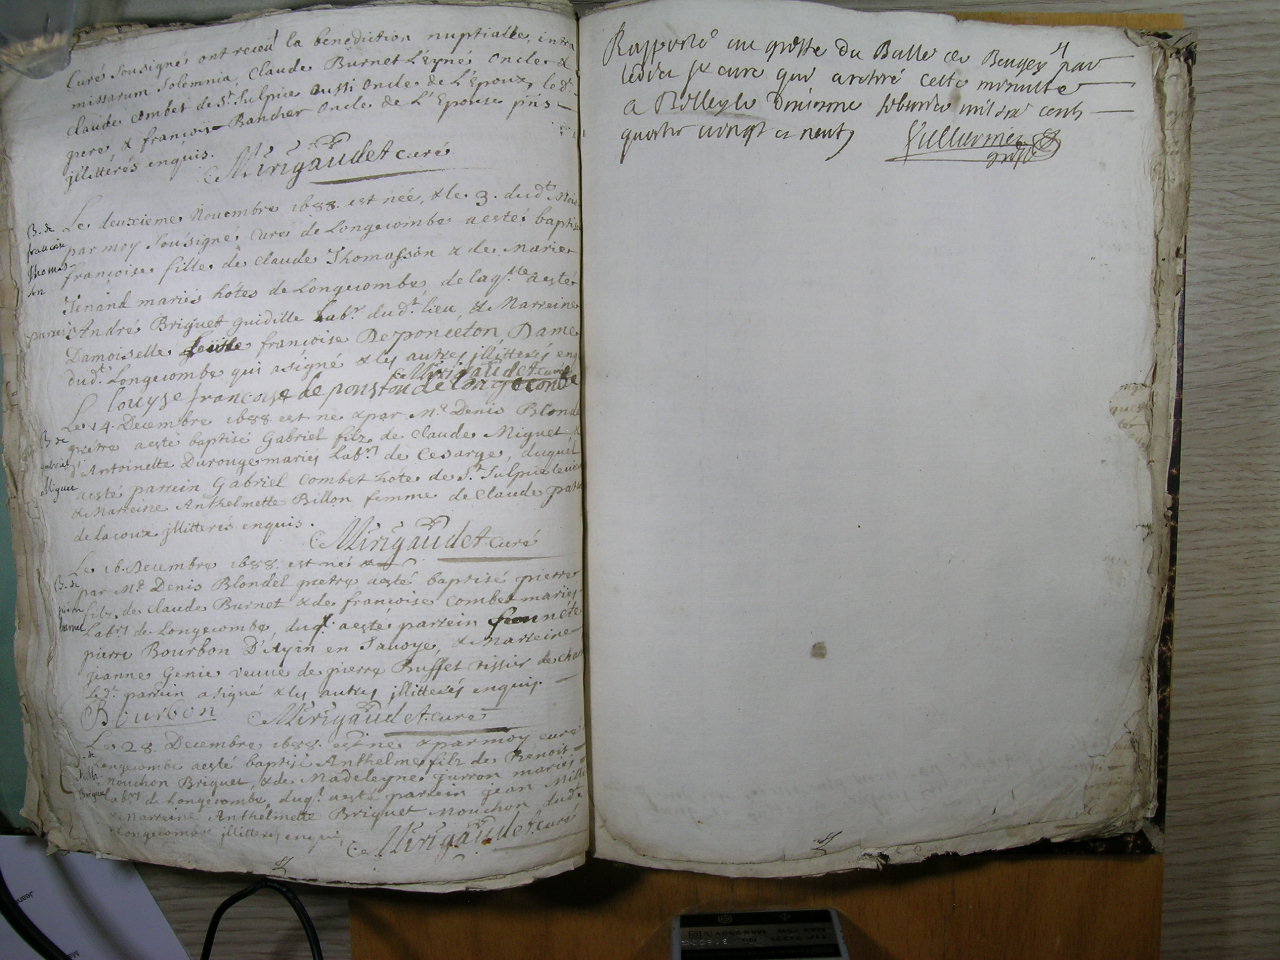 Curé sousigné ont receu la benediction nuptialle, intra
missarum solemnia, Claude Burnet L'eyné oncle &
claude combet de St. Sulpice aussi oncle de L'Epoux, le dt.
pere & françois Bancher oncle de L'Epouse pñs
jllitterés enquis. C. Mirigaudet curé
B. de françoise Thomasson
Le deuxieme Nouembre 1688. est née, & le 3. dudt. Nou
par moy sousigné curé de Longecombe a esté baptisé
françoise fille de claude Thomasson & de Marie
Tenand mariés hôtes de Longecombe, de laqlle a esté
parrein André Briguet guidille Labr. dudt. lieu, & Marreine
Damoiselle françoise De ponceton, Dame
dudt. Longecombe qui a signé & les autres jllitterés enq
C. Mirigaudet curé
louyse francoise de ponston de longecombe
B. de gabriel Miguet
Le 14. Decembre 1688 est né & par Mr. Denis Blondel
pretre a esté baptisé Gabriel filz de Claude Miguet, &
d'Antoinette Durouge mariés Labrs. de Cesarge, duquel
a esté parrein Gabriel Combet hôte de St. Sulpice le vieux
& Marreine Anthelmette Billon femme de Claude
de lacoux jllitterés enquis.
C. Mirigaudet curé
B. de pierre burnet
Le 16. Decembre 1688. est né &
par Mr. Denis Blondel pretre a esté baptisé pierre
filz de Claude Burnet & de françoise Combet mariés
Labrs. de Longecombe, duql. a esté parrein honnéte
pierre Bourbon D'Ayin en Savoye, & Marreine
jeanne Genie veuve de pierre Buffet tissier de
Ledt. parrein a signé & les autres jllitterés enquis.
Bourbon C. Mirigaudet curé
B. de Anth. Briguet
Le 28. Decembre 1688. est né & par moy curé
Longecombe a esté baptisé Anthelme filz de Benoit
Mouchon Briguet, & de Madeleyne Gurron mariés
Labrs. de Longecombe, duql. a esté parrein jean
& Marreine Anthelmette Briguet Mouchon dudt.
Longecombe jllitterés enquis,
C. Mirigaudet curé
4
Rapporté au greffe du Balle de Beugey par
ledit sr cure qui a retiré cette minutte
a Belley le
quatre vingt et neuf,